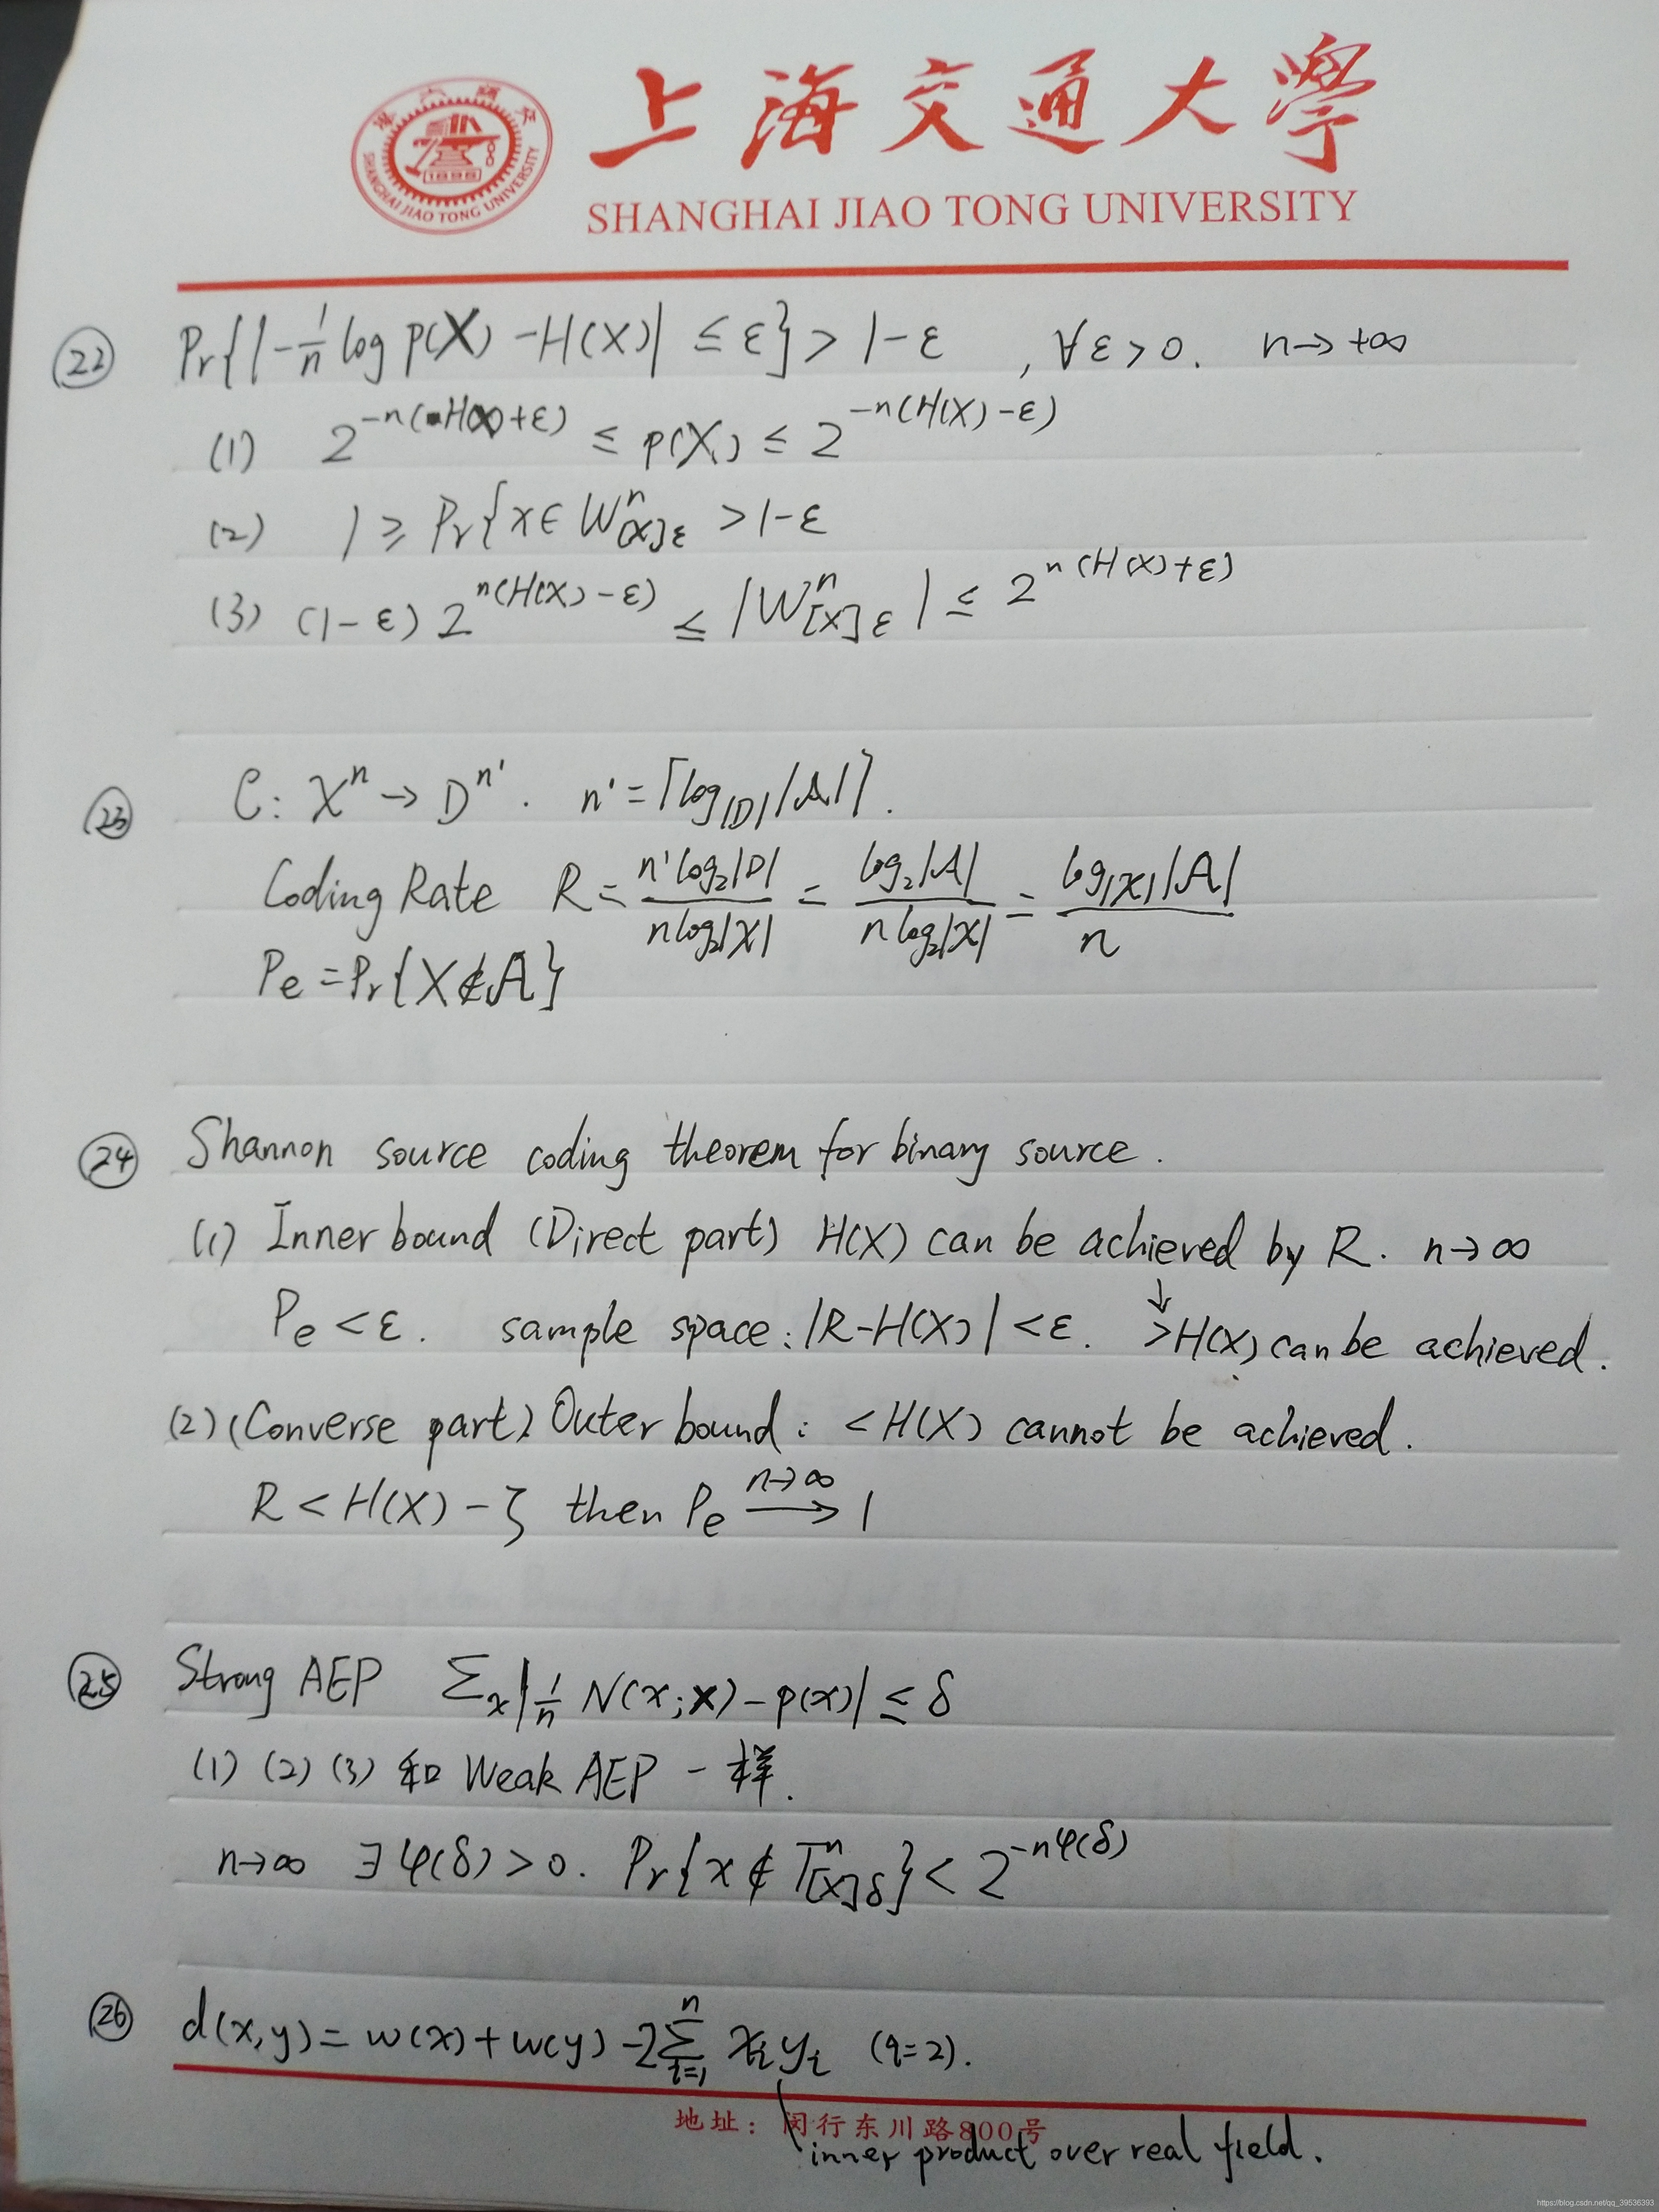 上海交通大學
SHANGHAI JIAO TONG UNIVERSITY
SHANGHAI JIAO TONG UNIVERSITY
1896
㉒ Pr{|-1/n log p(X) - H(X)| ≤ ε} > 1-ε , ∀ε > 0. n→+∞
(1) 2^{-n(H(X)+ε)} ≤ p(X) ≤ 2^{-n(H(X)-ε)}
(2) 1 ≥ Pr{x∈W^n_{[X]ε} > 1-ε
(3) (1-ε) 2^{n(H(X)-ε)} ≤ |W^n_{[X]ε}| ≤ 2^{n(H(X)+ε)}
㉓ C: 𝒳^n → D^{n'}. n' = ⌈log_{|D|}|𝒜|⌉.
Coding Rate R = n'log₂|D| / nlog₂|𝒳| = log₂|𝒜| / nlog₂|𝒳| = log_{|𝒳|}|𝒜| / n
Pe = Pr{X∉𝒜}
㉔ Shannon source coding theorem for binary source.
(1) Inner bound (Direct part) H(X) can be achieved by R. n→∞
Pe < ε. sample space: |R-H(X)| < ε. ↓ >H(X) can be achieved.
(2) (Converse part) Outer bound: <H(X) cannot be achieved.
R < H(X) - ζ then Pe —n→∞→ 1
㉕ Strong AEP Σ_x |1/n N(x;x) - p(x)| ≤ δ
(1) (2) (3) 和 Weak AEP 一样.
n→∞ ∃φ(δ) > 0. Pr{x ∉ T^n_{[X]δ}} < 2^{-nφ(δ)}
㉖ d(x,y) = w(x) + w(y) - 2Σ_{i=1}^{n} x_i y_i (q=2).
地址：闵行东川路800号
inner product over real field.
https://blog.csdn.net/qq_39536393